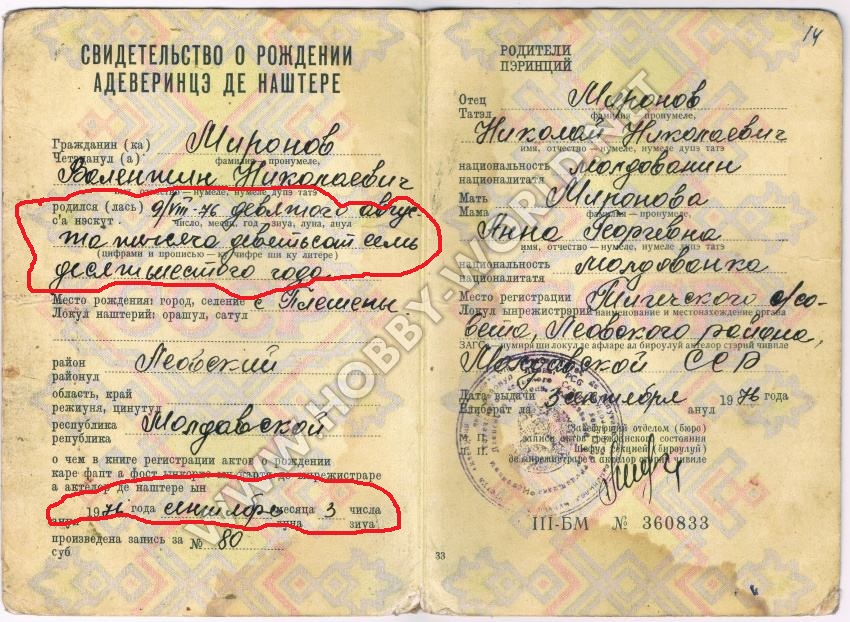 СВИДЕТЕЛЬСТВО О РОЖДЕНИИ
АДЕВЕРИНЦЭ ДЕ НАШТЕРЕ
Гражданин (ка) Миронов
Четэцянул (а) фамилия – пронумеле,
Валентин Николаевич
имя, отчество – нумеле, нумеле дупэ татэ
родился (лась) 9/VIII-76 девятого авгус-
с'а нэскут число, месяц, год – зиуа, луна, анул
та тысяча девятьсот семь
(цифрами и прописью – ку чифре ши ку литере)
десят шестого года
Место рождения: город, селение с Плешены.
Локул наштерий: орашул, сатул
район Леовский
районул
область, край
режиуня, цинутул
республика Молдавской
република
о чем в книге регистрации актов о рождении
каре фапт а фост
а актелор де наштере ын
1976 года сентября месяца 3 числа
анул луна зиуа
произведена запись за № 80
суб
14
РОДИТЕЛИ
ПЭРИНЦИЙ
Отец Миронов
Татэл фамилия – пронумеле,
Николай Николаевич
имя, отчество – нумеле, нумеле дупэ татэ
национальность молдованин
националитатя
Мать Миронова
Мама фамилия – пронумеле,
Анна Георгевна
имя, отчество – нумеле, нумеле дупэ татэ
национальность молдованка
националитатя
Место регистрации Тигечского с/со-
Локул ынрежистрэрий наименование и местонахождение органа
вета, Леовского района,
ЗАГС нумиря ши локул де афларе ал бироулуй актелор стэрий чивиле
Молдавской ССР
Дата выдачи 3 сентября 1976 года
Елиберат ла анул
М. П. Заведующий отделом (бюро)
записи актов гражданского состояния
Шефул секцией (бироулуй)
де ынрежистраре а актелор стэрий чивиле
III-БМ № 360833
33
WWW.HOBBY-WORLD.NET